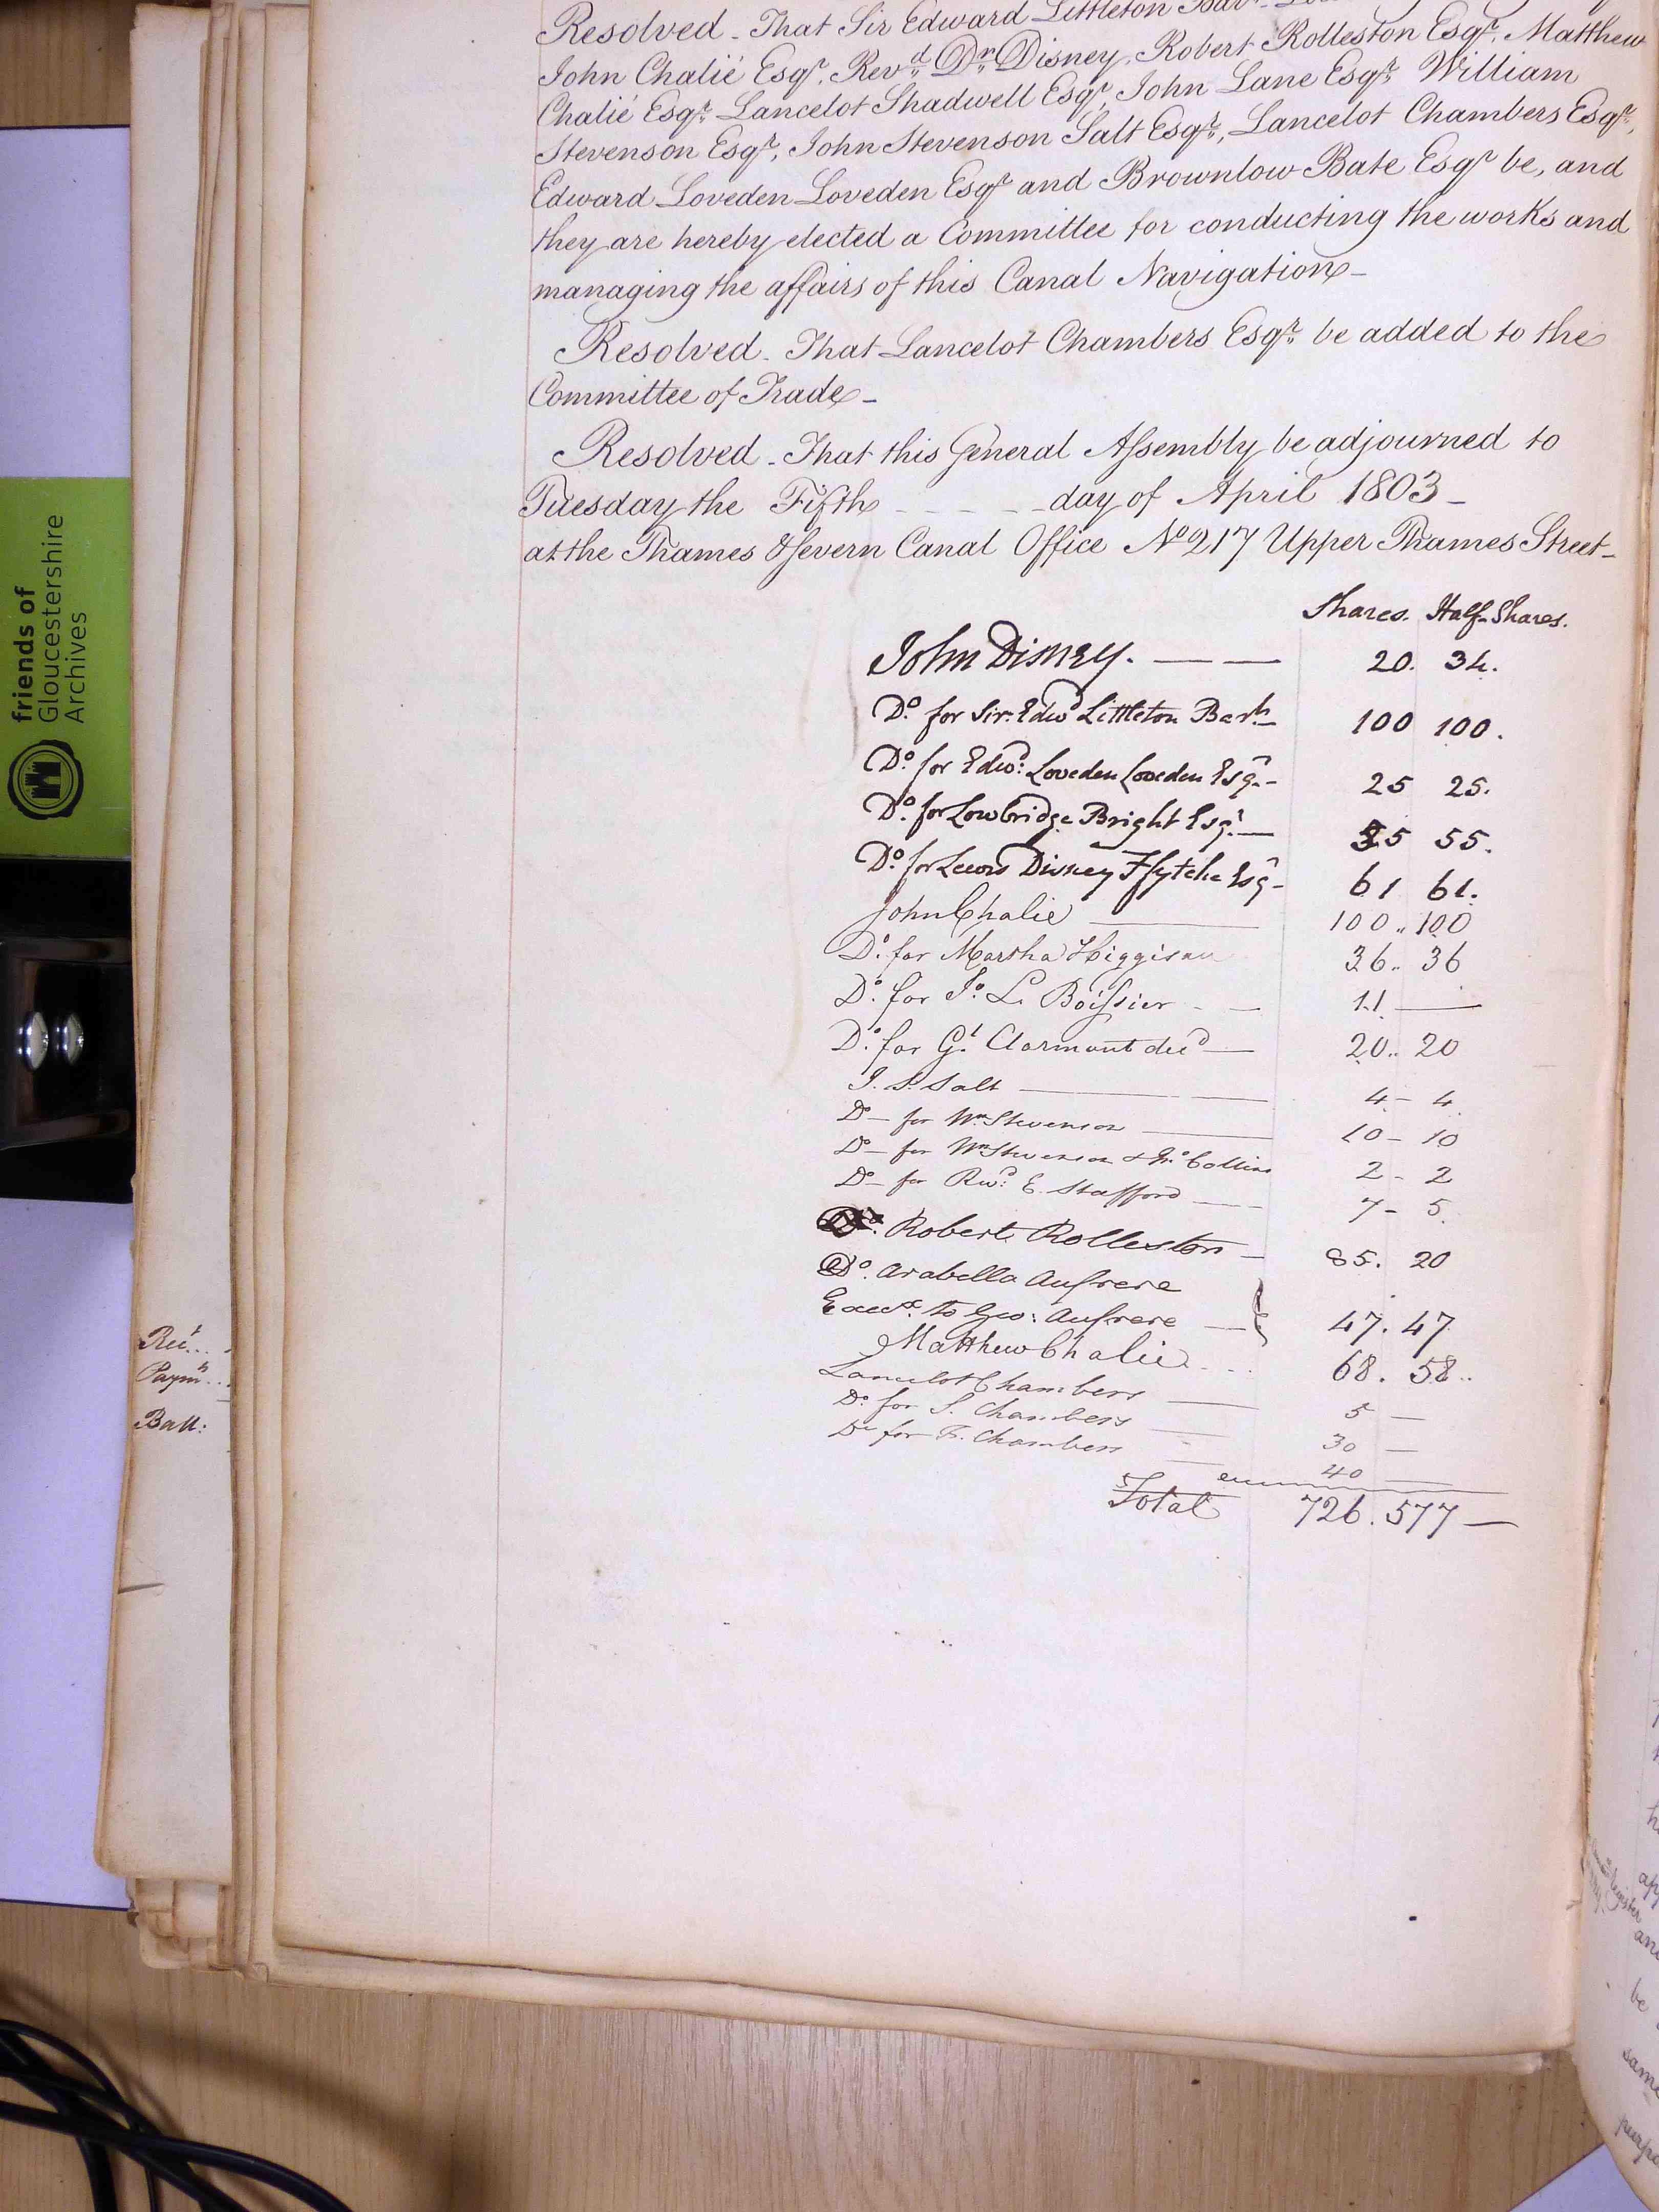 Resolved - That Sir Edward Littleton Bart
John Chalié Esqr. Revd. Dr. Disney, Robert Rolleston Esqr. Matthew
Chalié Esqr. Lancelot Shadwell Esqr, John Lane Esqr. William
Stevenson Esqr, John Stevenson Salt Esqr., Lancelot Chambers Esqr.,
Edward Loveden Loveden Esqr and Brownlow Bate Esqr be, and
they are hereby elected a Committee for conducting the works and
managing the affairs of this Canal Navigation -
Resolved - That Lancelot Chambers Esqr. be added to the
Committee of Trade -
Resolved - That this General Assembly be adjourned to
Tuesday the Fifth - - - - - day of April 1803 -
at the Thames & Severn Canal Office No 217 Upper Thames Street -
Shares. Half-Shares.
John Disney. — — 20. 34.
Do. for Sir. Edwd Littleton Bart. 100 100.
Do. for Edwd: Loveden Loveden Esqr. - 25 25.
Do. for Lowbridge Bright Esqr. — 55 55.
Do. for Lewis Disney Ffytche Esqr - 61 61.
John Chalie — 100 .. 100
Do. for Martha Higginson 36 .. 36
Do. for Jo. L. Boissier - — 11 —
Do. for Gt. Clarmont decd — 20 .. 20
J. S. Salt — — 4 - 4
Do - for Wm Stevenson — 10 - 10
Do - for Wm Stevenson & Jno Collins 2 - 2
Do - for Revd. E. Stafford — 7 - 5.
Do. Robert Rolleston - 85. 20
Do. Arabella Aufrere
Execx. to Geo: Aufrere — } 47. 47
Matthew Chalie - - - 68. 58..
Lancelot Chambers — 5 —
Do. for S. Chambers — 30 —
Do for F. Chambers — 40 —
Total 726. 577 —
Rect...
Paymts...
Ball:
friends of
Gloucestershire
Archives